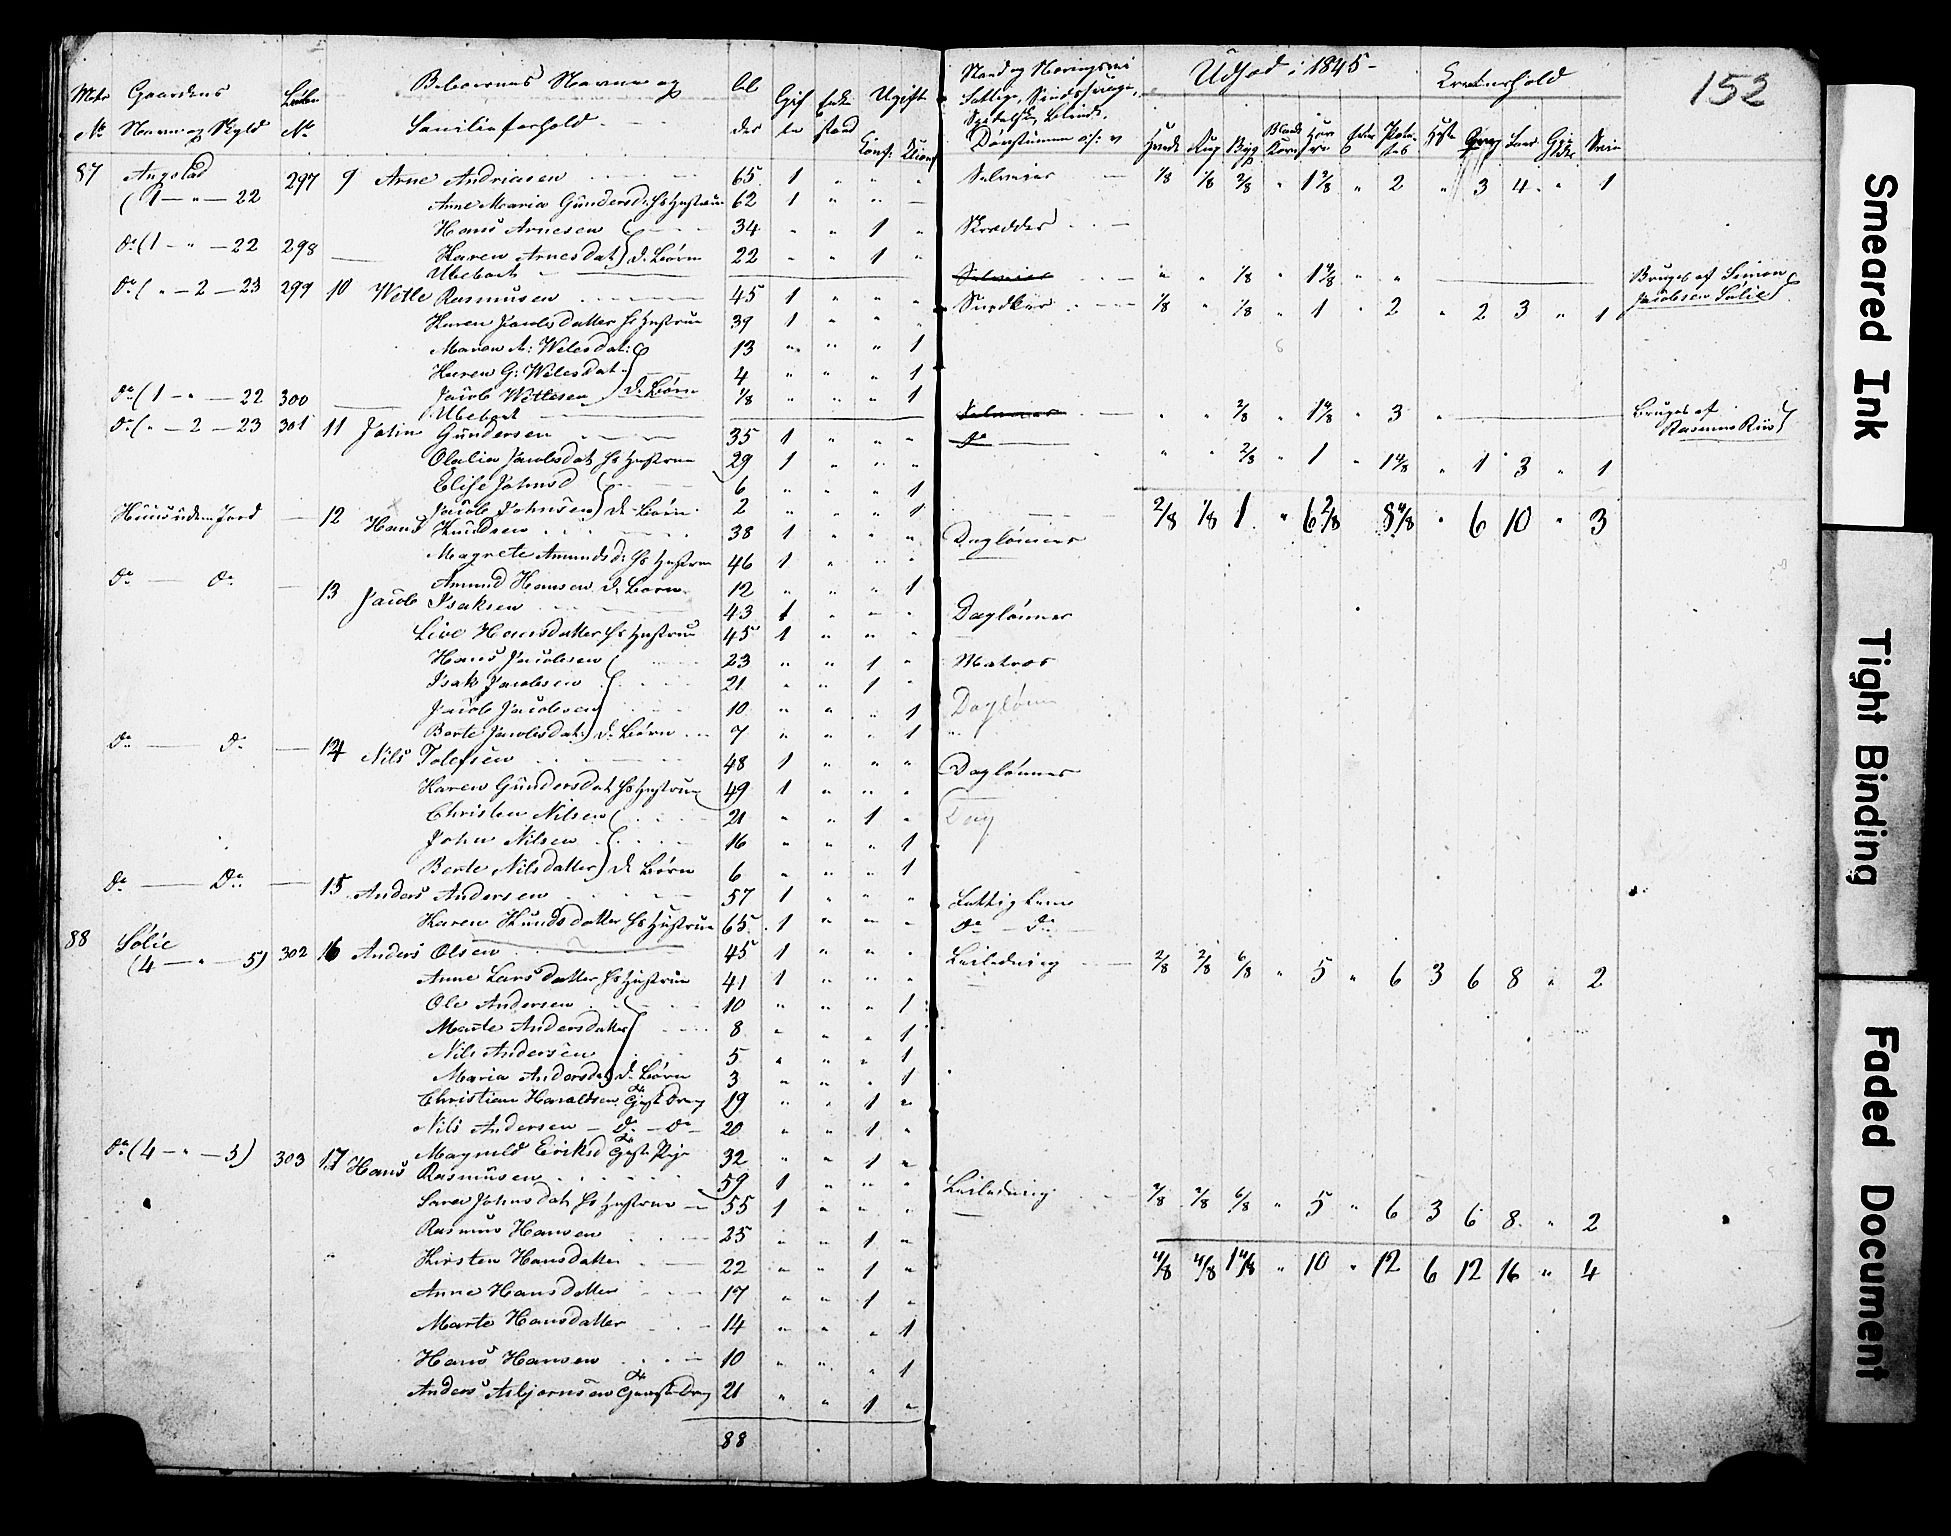 152
Matr Gaardens Løbe Beboernes Navne og Al Gif Enke Ugift Stand og Næringsvei Udsæd i 1845 - Kreaturhold
№ Navn og Skyld № Familieforhold der te stand Conf: Fattige, Sindssvage,
Spedalske, Blinde,
Døvstumme o: s: v Hvede Rug Byg Blandkorn Havre Erter Potetes Heste Qvæg Faar Gjeder Svin
87 Angstad 297 9 Arne Andriasen 65 1 " " " Selveier 1/8 1/8 2/8 " 1 2/8 " 2 " 3 4 " 1
(1 — " — 22 Anne Maria Gundersd: Hs Hustrue 62 1 " " —
Hans Arnesen 34 " " 1 " Skrædder
do (1 — " — 22 298 — Karen Arnesdat: d: Børn 22 " " 1 "
Ubeboet Selveier " " 1/8 " 1 4/8 " " Bruges af Simon
Jacobsen Sølie
do ( " — 2 — 23 299 10 Wetle Rasmusen 45 1 " " " Snedker 1/8 " 1/8 " 1 " 2 " 2 3 " 1
Karen Jacobsdatter Hs Hustrue 39 1 " " "
Maren A: Wetlesdat: 13 " " " 1
Karen G: Wetlesdat: 4 " " " 1
Jacob Wetlesen d: Børn 1/8 " " " 1
do (1 — " — 22 300 — Ubeboet Selveier " " 2/8 " 1 4/8 " 3 " Bruges af
Rasmus Riis
do ( " — 2 — 23 301 11 John Gundersen 35 1 " " " do " " 2/8 " 1 " 1 4/8 " 1 3 " 1
Olalia Jacobsdat Hs Hustrue 29 1 " " "
Elise Johnsd 6 " " " 1
Jacob Johnsen d: Børn 2 " " " 1 2/8 1/8 1 " 6 2/8 8 4/8 " 6 10 " 3
Huus uden Jord — 12 Hans Knudsen 38 1 " " " Daglønner
Magrete Amundsd: Hs Hustrue 46 1 " " "
Amund Hansen d: Børn 12 " " " 1
do — do — 13 Jacob Isaksen 43 1 " " " Daglønner
Live Hansdatter Hs Hustrue 45 1 " " "
Hans Jacobsen 23 " " 1 " Matros
Isak Jacobsen 21 " " 1 "
Jacob Jacobsen 10 " " " 1 Dagløn
Berte Jacobsdat: d: Børn 7 " " " 1
do — do — 14 Nils Tolefsen 48 1 " " " Daglønner
Karen Gundersdat Hs Hustrue 49 1 " " "
Christen Nilsen 21 " " 1 " Dag
John Nilsen 16 " " " 1
Berte Nilsdatter d: Børn 6 " " " 1
do — Do — 15 Anders Andersen 57 1 " " " Fattig Lem
Karen Knudsdatter Hs Hustrue 65 1 " " " do — do
88 Sølie 302 16 Anders Olsen 45 1 " " " Leilending 2/8 2/8 6/8 " 5 " 6 3 6 8 " 2
(4 — " — 5) Anne Larsdatter Hs Hustrue 41 1 " " "
Ole Andersen 10 " " " 1
Marte Andersdatter 8 " " " 1
Nils Andersen 5 " " " 1
Maria Andersdat d: Børn 3 " " " 1
Christian Haraldsen Tjenste Dreng 19 " " 1 "
Nils Andersen — do — do 20 " " 1 "
Magnild Eriksd Tjenste Pige 32 " " 1 "
do (4 — " — 5) 303 17 Hans Rasmusen 59 1 " " " Leilending 2/8 2/8 6/8 " 5 " 6 3 6 8 " 2
Sara Johnsdat Hs Hustrue 55 1 " " "
Rasmus Hansen 25 " " 1 "
Kirsten Hansdatter 22 " " 1 " 4/8 4/8 1 4/8 " 10 " 12 6 12 16 " 4
Anne Hansdatter 17 " " 1 "
Marte Hansdatter 14 " " " 1
Hans Hansen 10 " " " 1
Anders Asbjørnsen Tjenste Dreng 21 " " 1 "
88
Smeared Ink
Tight Binding
Faded Document